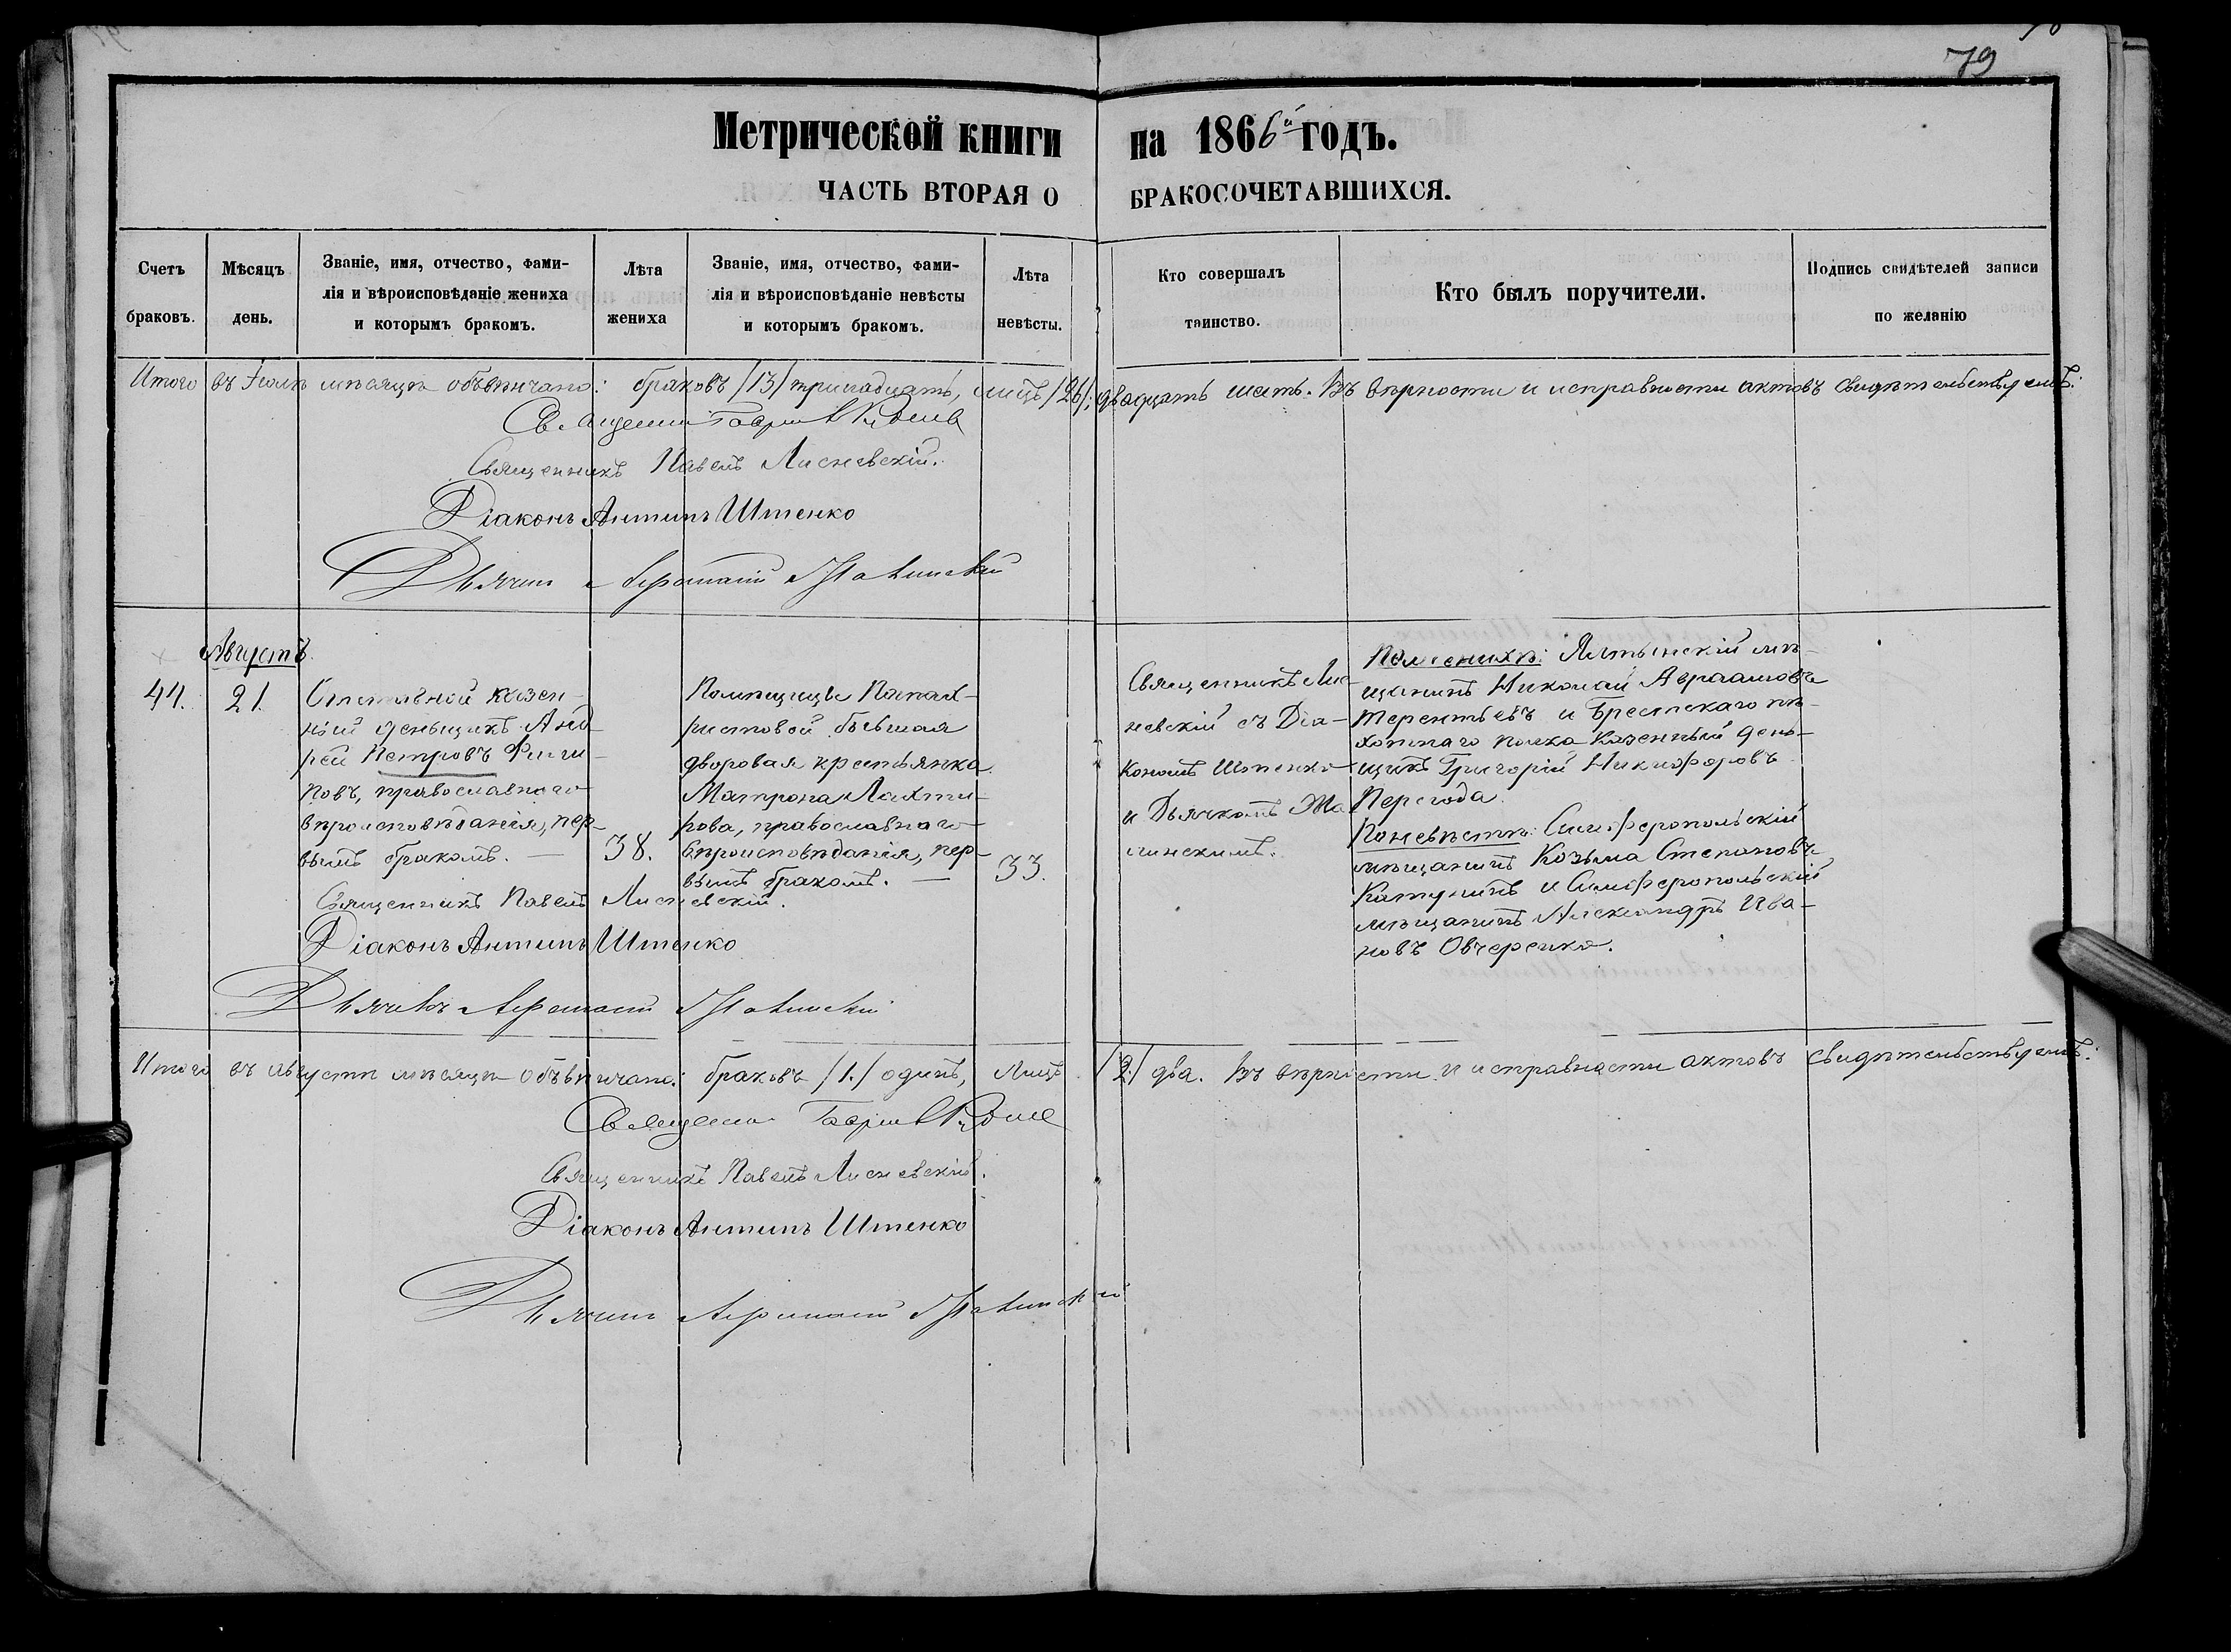 79
Метрической книги на 1866й годъ.
ЧАСТЬ ВТОРАЯ О БРАКОСОЧЕТАВШИХСЯ.
Счетъ браковъ.
Мѣсяцъ день.
Званіе, имя, отчество, фами-
лія и вѣроисповѣданіе жениха
и которымъ бракомъ.
Лѣта
жениха
Званіе, имя, отчество, фами-
лія и вѣроисповѣданіе невѣсты
и которымъ бракомъ.
Лѣта
невѣсты.
Кто совершалъ
таинство.
Кто былъ поручители.
Подпись свидѣтелей записи
по желанію
Итого въ Іюлѣ мѣсяцѣ обвѣнчано: браковъ /13/ тринадцать, лицъ /26/; двадцать шесть. Въ вѣрности и исправности актовъ свидѣтельствуемъ:
Священникъ Павелъ Лисневскій.
Діаконъ Антипъ Штенко
Дьячекъ
Августъ.
44.
21.
казен-
ный деньщикъ Анд-
рей Петровъ Фили-
повъ, православнаго
вѣроисповѣданія, пер-
вымъ бракомъ. —
38.
Помѣщицы Папах-
ристовой бывшая
дворовая крестьянка
Матрона
рова, православнаго
вѣроисповѣданія, пер-
вымъ бракомъ. —
33.
Священникъ Лис-
невскій съ Діа-
кономъ Штенко
и Дьячкомъ Жа-
линскимъ.
По женихѣ: Ялтынскій мѣ-
щанинъ Николай Авраамовъ
Терентьевъ и Брестскаго пѣ-
хотнаго полка казенный день-
щикъ Григорій Никифоровъ
Перегода.
По невѣстѣ: Симферопольскій
мѣщанинъ Козьма Степановъ
и Симферопольскій
мѣщанинъ Александръ Ива-
новъ Овчеренко.
Священникъ Павелъ Лисневскій.
Діаконъ Антипъ Штенко
Дьячекъ
Итого въ августѣ мѣсяцѣ обвѣнчано: браковъ /1./ одинъ, лицъ /2./ два. Въ вѣрности и исправности актовъ свидѣтельствуемъ:
Священникъ Павелъ Лисневскій.
Діаконъ Антипъ Штенко
Дьячекъ